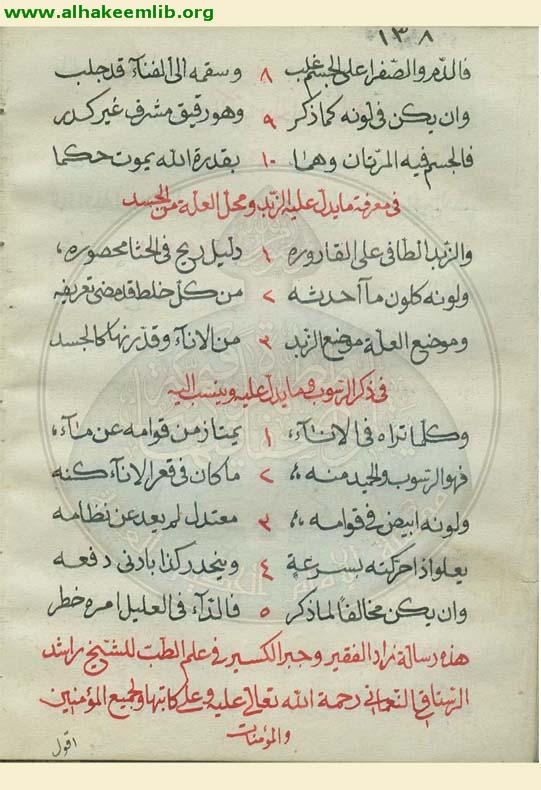 www.alhakeemlib.org
١٣٨
فالدم والصفرا على الجسم غلب ٨ وسقمه الى الفنآء قد جلب
وان يكن في لونه كما ذكر ٩ وهو رقيق مشرف غير كدر
فالجسم فيه المرتان وهما ١٠ بقدرة الله يموت حكما
في معرفة ما يدل عليه الزبد ومحل العلة من الجسد
والزبد الطافي على القاروره ١ دليل ريح في الحشا محصوره
ولونه كلون ما أحدثه ٢ من كل خلط قد مضى تعريفه
وموضع العلة موضع الزبد ٣ من الانآء وقدرنها كالجسد
في ذكر الرسوب وما يدل عليه وينسب اليه
وكلما تراه في الانآء ١ يمتاز من قوامه عن مآء
فهو الرسوب والجيد منه ٢ ما كان في قعر الانآء كنه
ولونه ابيض في قوامه ٣ معتدل لم يعد عن نظامه
يعلو اذا حركته بسرعة ٤ وينحدر كذا بادنى دفعه
وان يكن مخالفاً لما ذكر ٥ فالدآء في العليل امره خطر
هذه رسالة زاد الفقير وجبر الكسير في علم الطب للشيخ راشد
الرستاقي النعماني رحمة الله تعالى عليه وعلى كاتبها ولجميع المؤمنين
والمؤمنات
اقول